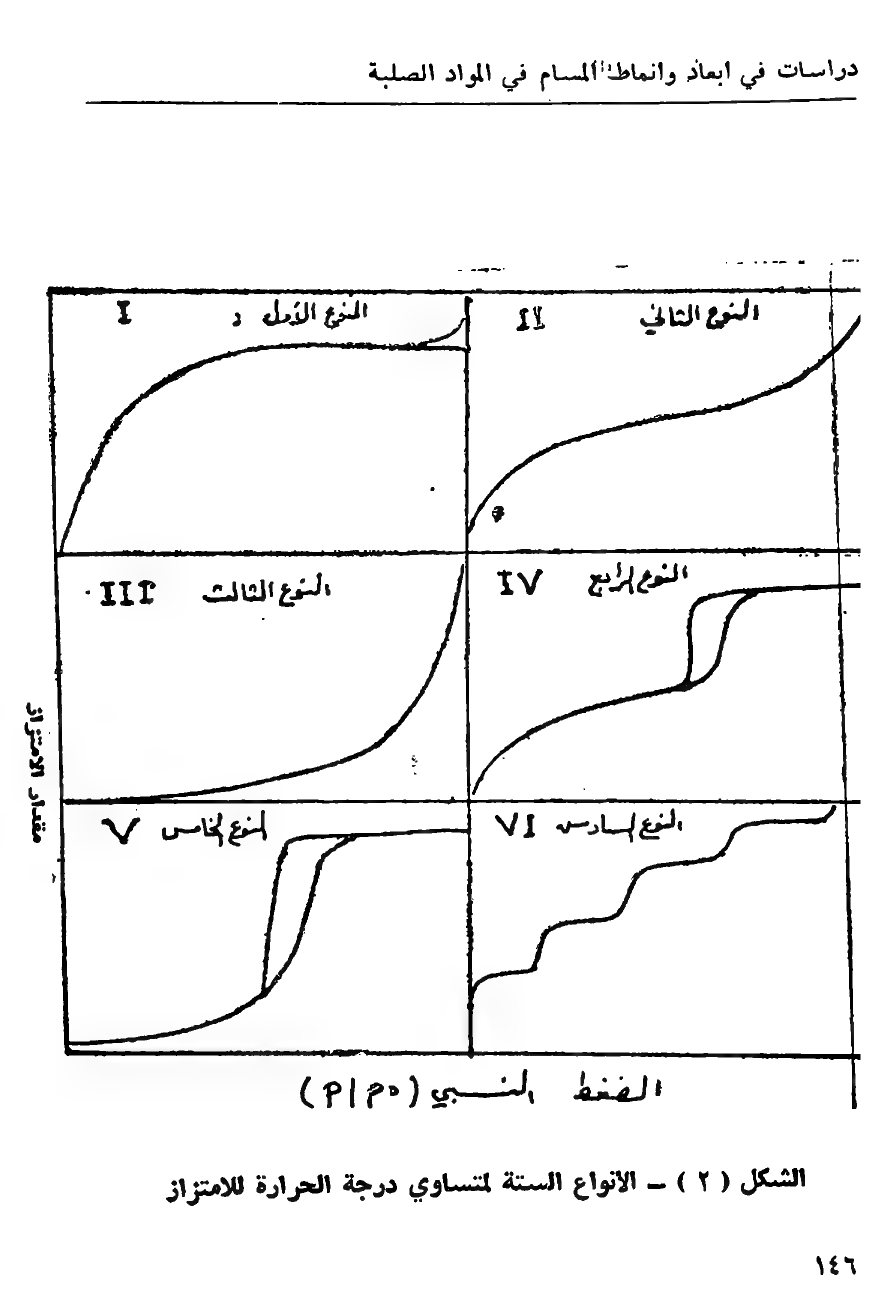 دراسات في ابعاد وانماط المسام في المواد الصلبة
النوع الأول I
النوع الثاني II
النوع الثالث III
النوع الرابع IV
النوع الخامس V
النوع السادس VI
مقدار الامتزاز
الضغط النسبي (P/P°)
الشكل (٢) – الانواع الستة لمتساوي درجة الحرارة للامتزاز
١٤٦